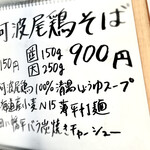 阿波尾鶏そば
150円 国 150g 900円
因 250g
阿波尾鶏100%清湯しょうゆスープ
海道産小麦N15 寿平打麺
豚バラ炭焼きチャーシュー